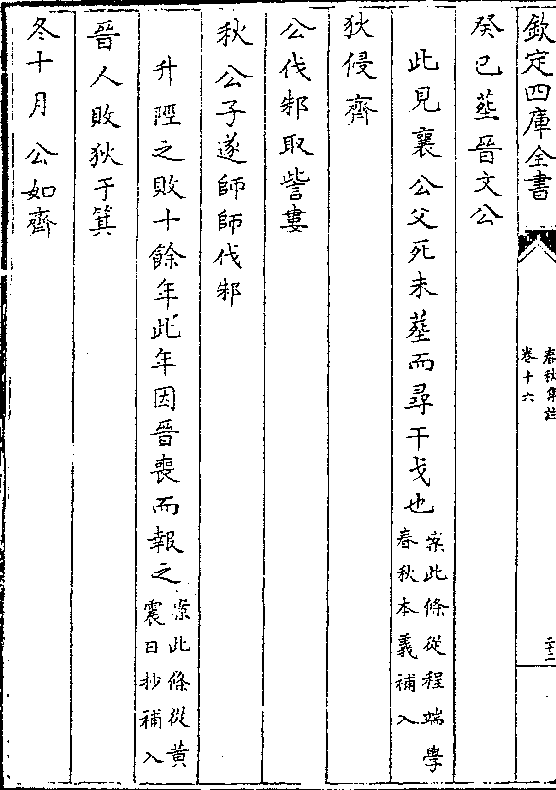 欽定四庫全書
春秋集註
卷十六
二十二
癸巳葬晉文公
此見襄公父死未葬而尋干戈也案此條從程端學春秋本義補入
狄侵齊
公伐邾取訾婁
秋公子遂師師伐邾
升陘之敗十餘年此年因晉喪而報之案此條從黃震日抄補入
晉人敗狄于箕
冬十月公如齊